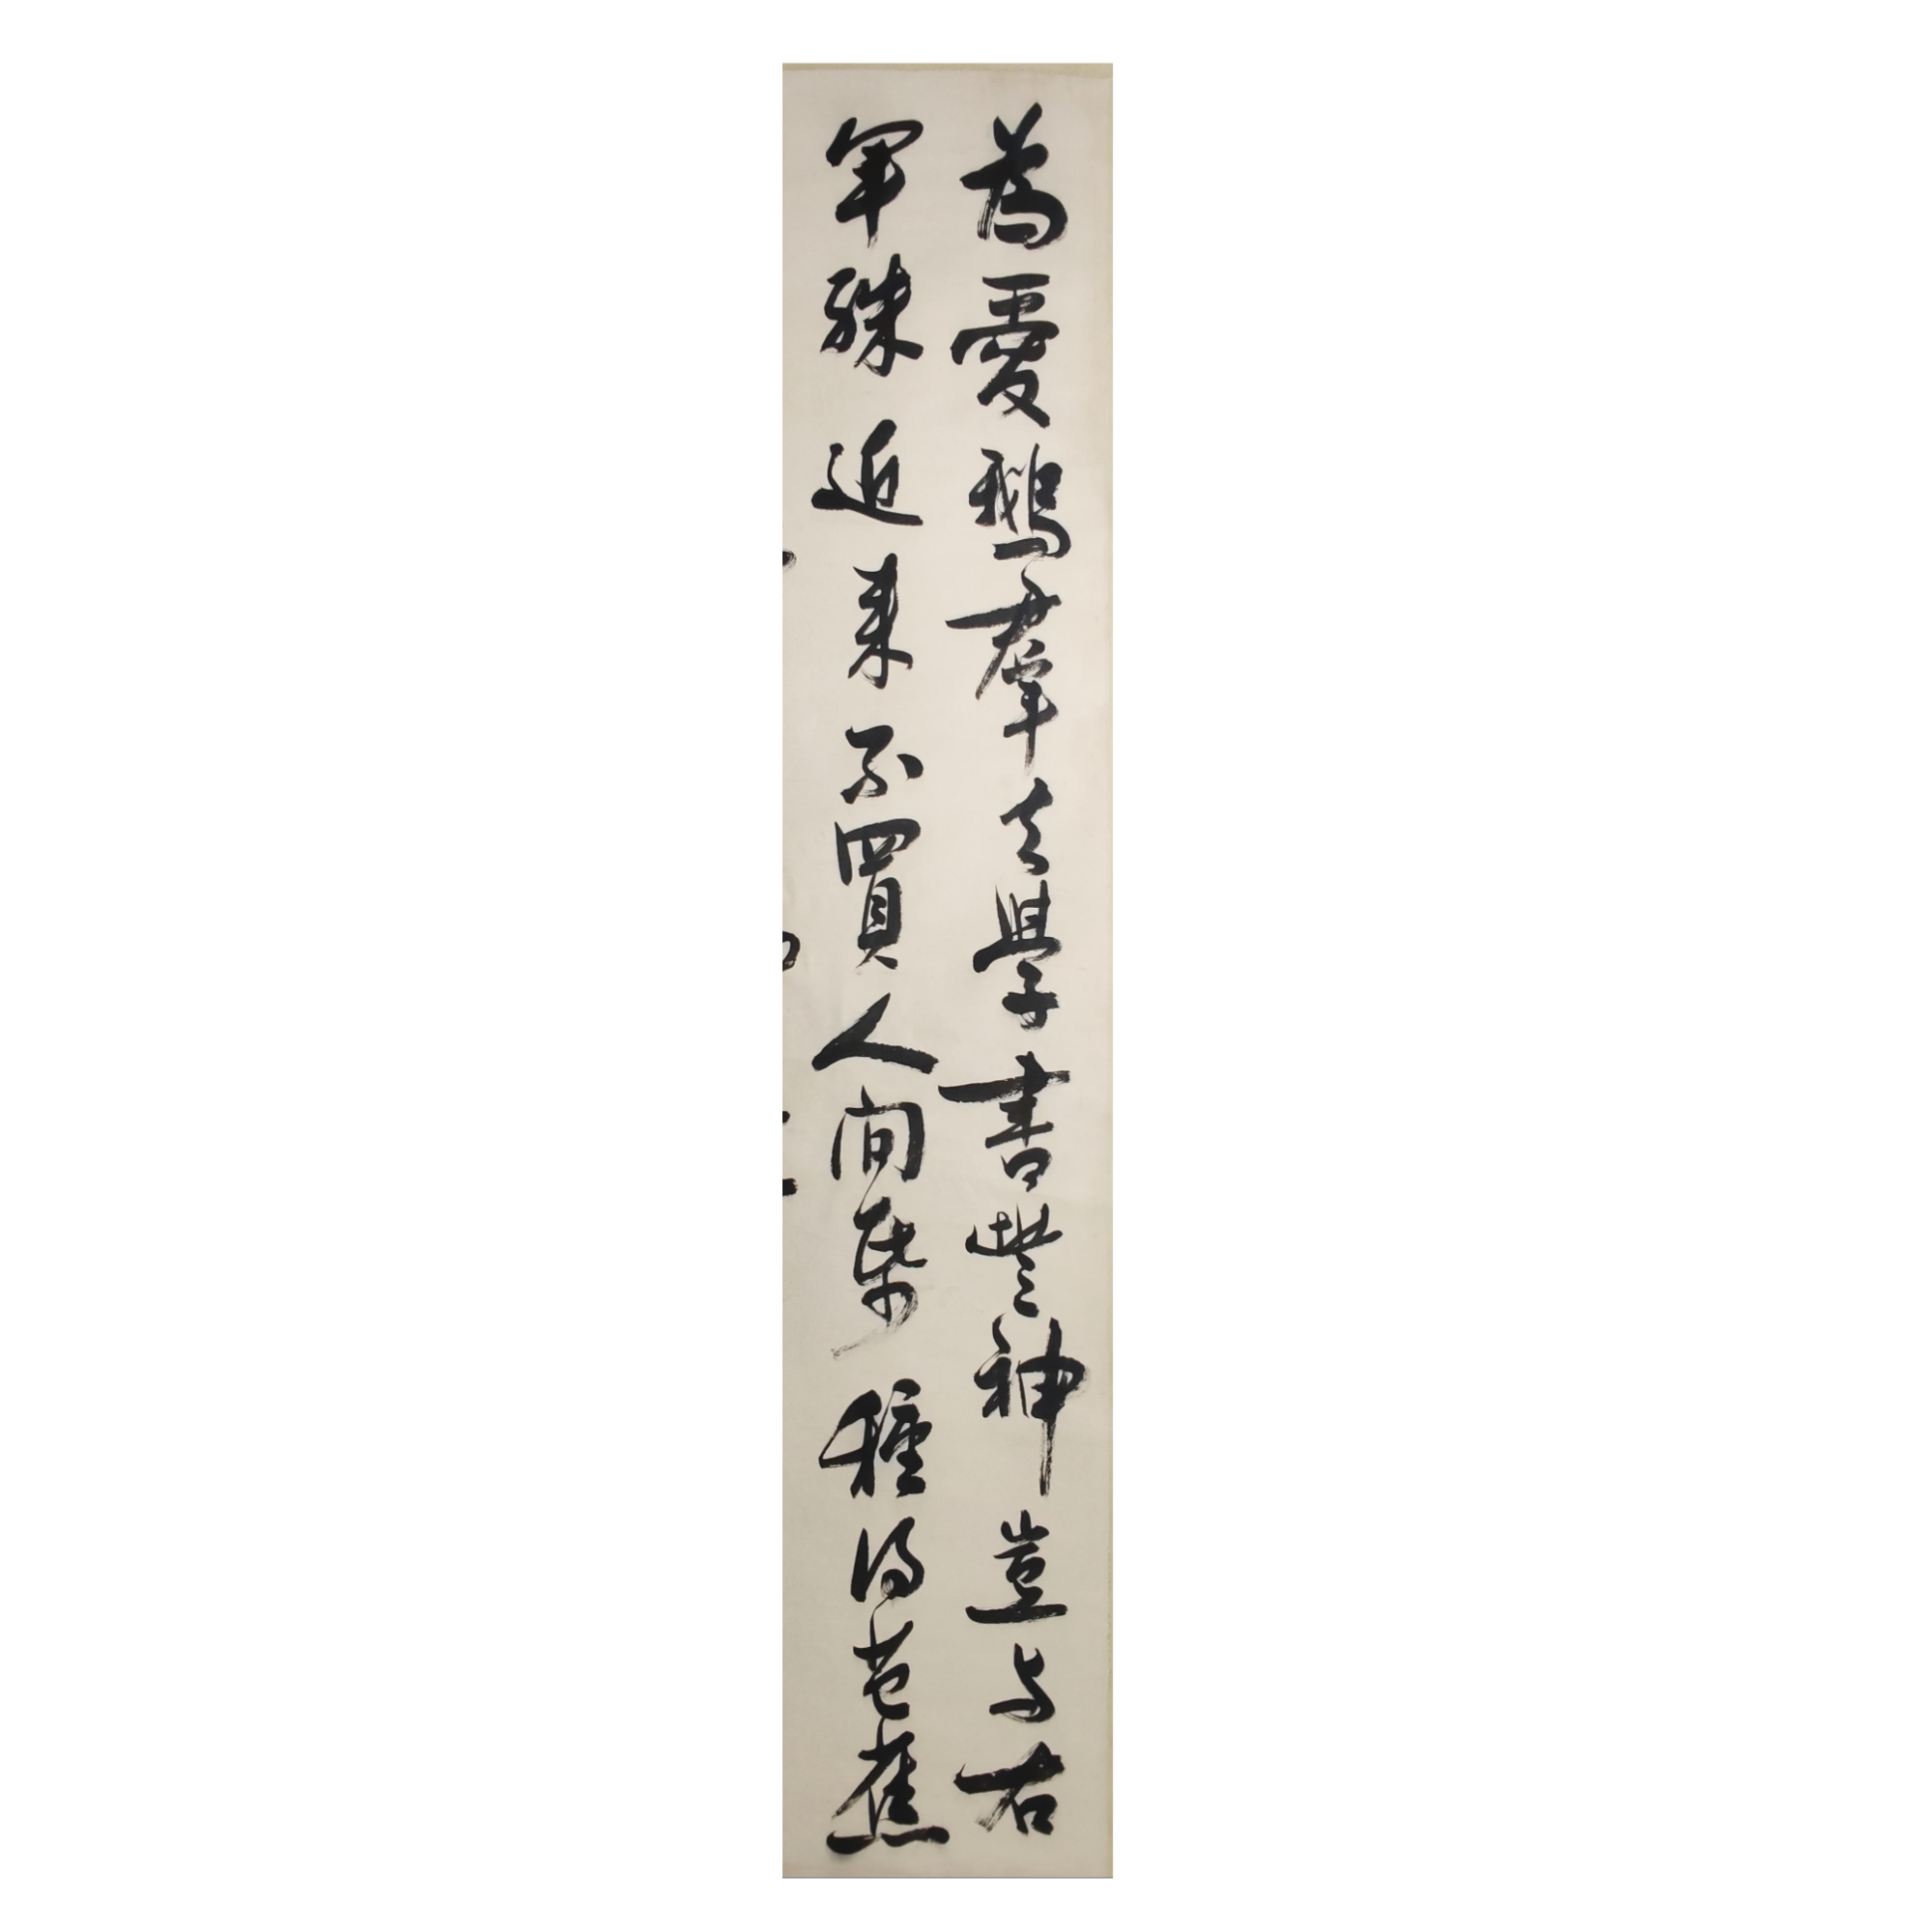 為愛鵝群去學書豐神豈与右
軍殊近来不買人間紙種得芭蕉